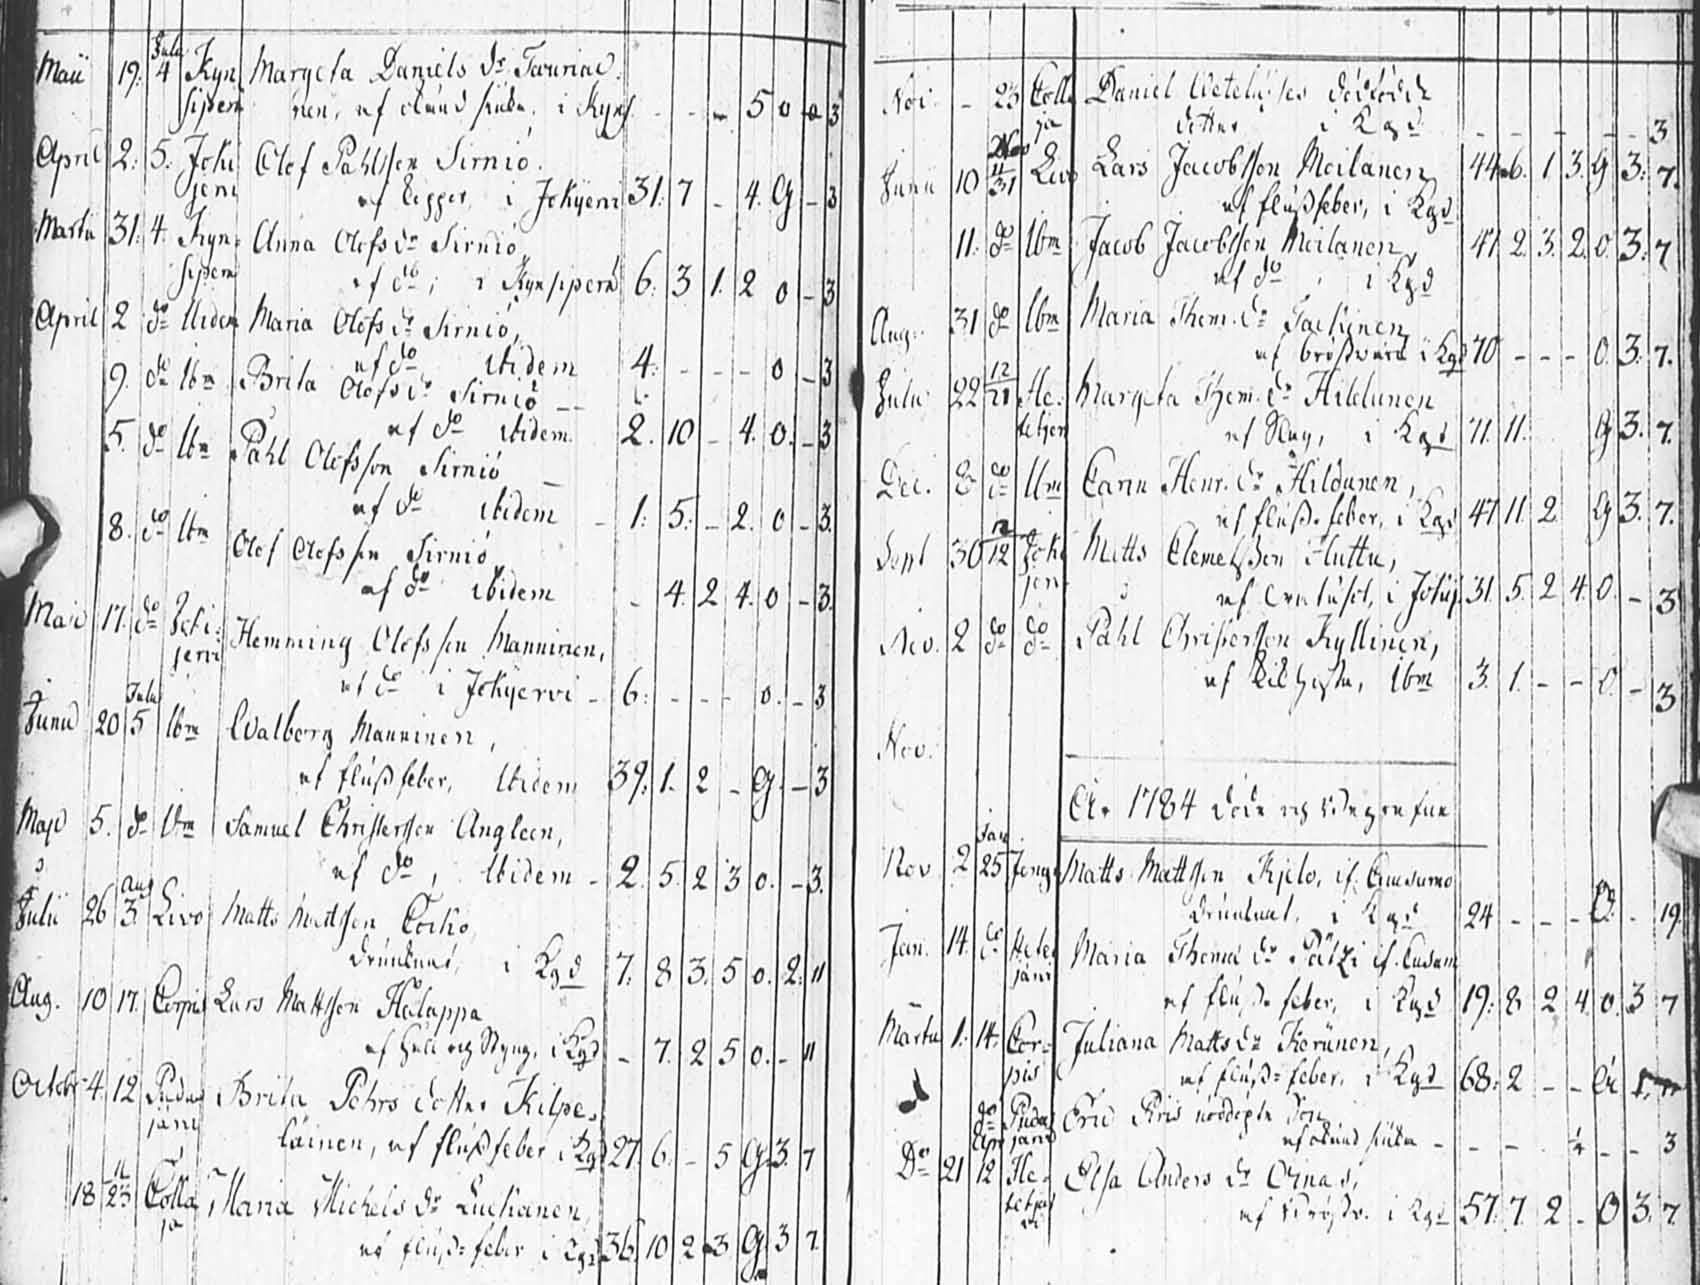 Julii
Maii 19. 4 Kyn Margeta Daniels dr Tauriai
sipem nen, af okänd siuka, i Kyns. - - - 5 0 0 3
April 2. 5. Joki Olof Påhlsson Sirniö.
jeni af koppor, i Jokijervi 31. 7 - 4. G - 3
Martii 31. 4. Kyn Anna Olofs dr Sirniö,
sipem af do, i Kynsiperä 6. 3 1. 2 0 - 3
April 2 do Ibidem Maria Olofs dr Sirniö,
af do ibidem 4. - - - 0 - 3
9. do Ibm Brita Olofs dr Sirniö
af do ibidem 2. 10 - 4. 0. - 3
5. do Ibm Påhl Olofsson Sirniö
af do ibidem - 1. 5. - 2. 0 - 3.
8. do Ibm Olof Olofsson Sirniö
af do ibidem - 4. 2 4. 0 - 3.
Maii 17. do Joki- Hemming Olofsson Manninen,
jervi af do i Jokijervi - 6. - - - 0. - 3
Julii
Junii 20 5 Ibm Walborg Manninen,
af flussfeber, ibidem 39. 1. 2 - G. - 3
Maji 5. do Ibm Samuel Christersson Angleen,
af do, ibidem - 2. 5. 2 3 0. - 3.
Aug
Julii 26 3. Livo Matts Mattsson Törhö,
drunknat, i Kgd 7. 8 3. 5 0. 2. 11
Aug. 10 17. Corpis Lars Mattsson Halappa
af håll och styng, i Kgd - 7. 2 5 0. - 11
Octobr 4. 12 Pudas Brita Pehrs dotter Kilpe-
järvi läinen, af flussfeber i Kgd 27. 6. - 5 G. 3. 7
18 11/23 Colla Maria Michels dr Luckanen,
ja af fluss-feber i Kgd 36. 10 2 3 G 3 7.
Nov. - 23 Colla Daniel Wetelüses dödfödde
ja dotter i Kgd - - - - - - 3
Nov
Junii 10 11/31 Livo Lars Jacobsson Moilanen,
af flussfeber, i Kgd 44 6. 1 3. G 3. 7.
11. do Ibm Jacob Jacobsson Moilanen,
af do i Kgd 47 2. 3. 2. 0. 3. 7
Aug. 31 do Ibm Maria Thom. dr Jackinen,
af bröstvärk i Kgd 70 - - - 0. 3. 7.
Julii 22 12/21 He- Margeta Thom. dr Hildunen
tekjer af Styng, i Kgd 71. 11. G 3. 7.
Dec. 8 do Ibm Carin Henr. dr Hildunen,
af fluss-feber, i Kgd 47 11 2 G 3. 7.
Sept 30 12/12 Joki Matts Clemetsson Huttu,
jen i Jokij. 31. 5. 2 4. 0. - 3
Nov. 2 do do Påhl Christersson Kyllinen,
af kikhosta, Ibm 3. 1. - - 0. - 3
Nov.
År 1784 döde och begrafne
Jan
Nov 2 25 Jong Matts Mattsson Kjelo, if. Cuusamo
drunknat, i Kgd 24 - - - 0. - 19
Jan. 14. do Hete Maria Thomæ dr Pätzi if. Cusam
järvi af fluss feber, i Kgd 19. 8 2 4. 0. 3 7
Martii 1. 14. Cor- Juliana Matts dr Korünen,
pis af fluss-feber, i Kgd 68. 2 - -
do Pudas Eric Riis nöddöpte Son
järvi af okänd siuka - - - - - - 3
Apr
Do 21 12 He- Elsa Anders dr Ornas,
tekjär
vi af bröstv. i Kgd 57. 7 2 - 0 3. 7